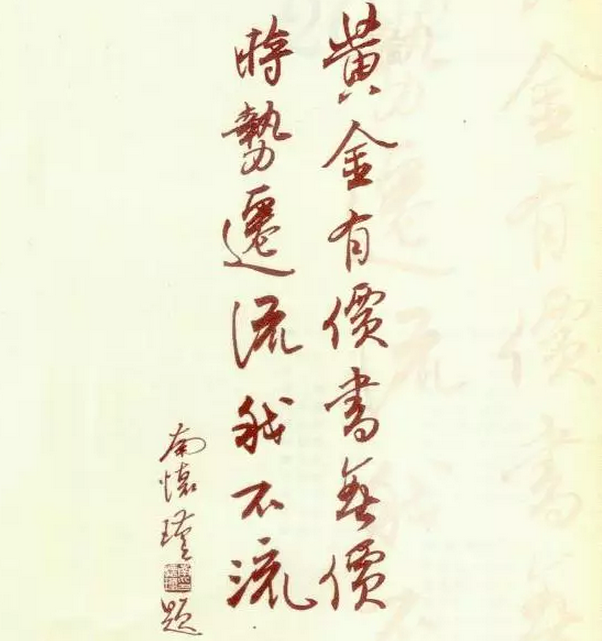 黄金有價書無價
時勢遷流我不流
南懷瑾題